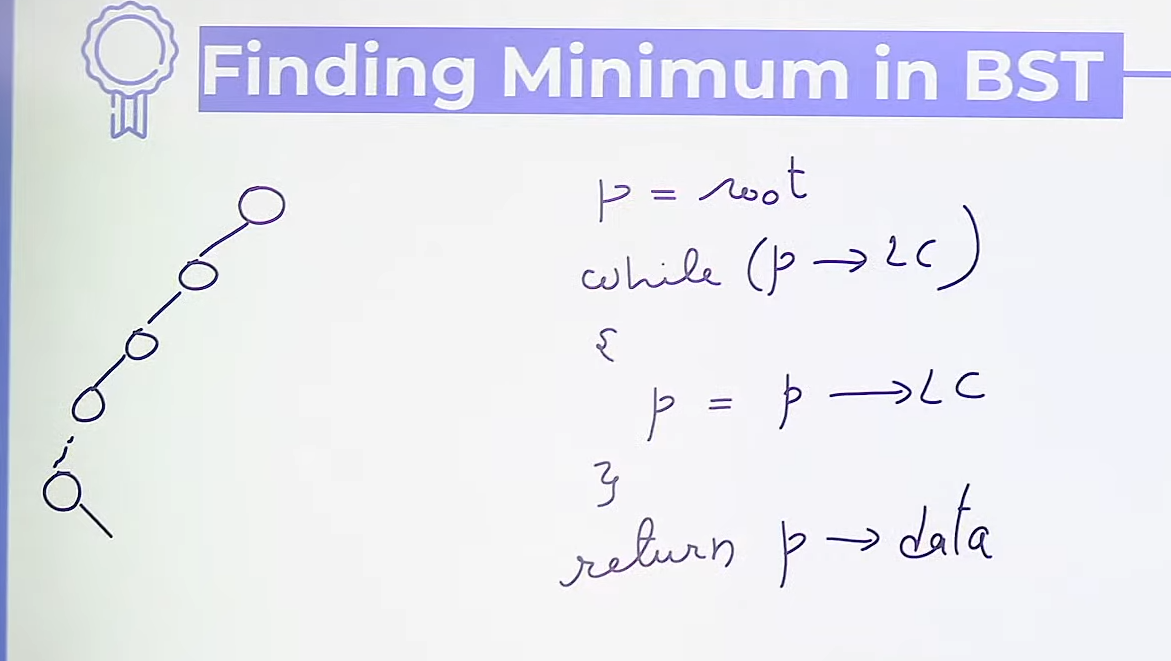 Finding Minimum in BST
p = root
while (p → LC)
{
p = p → LC
}
return p → data